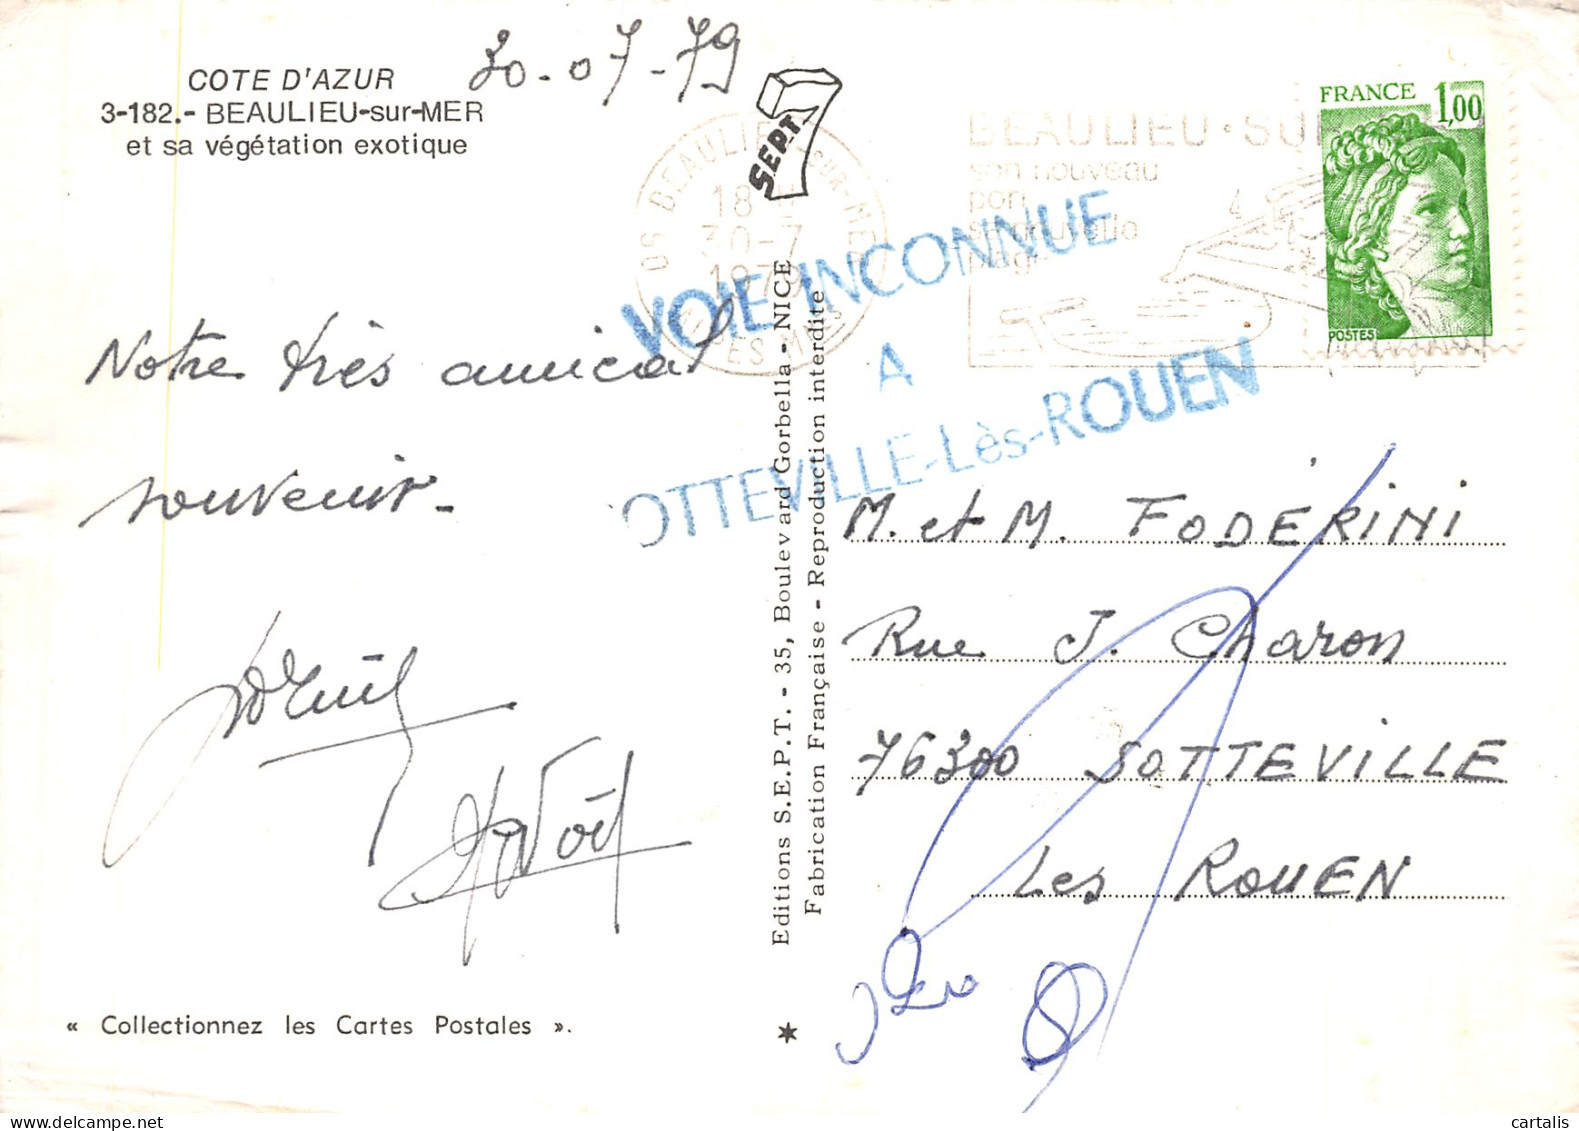 COTE D'AZUR
3-182.- BEAULIEU-sur-MER
et sa végétation exotique
30-07-79
SEPT
06 BEAULIEU SUR-MER
18 H
30-7
1979
ES-MMES
BEAULIEU · SU
son nouveau
port
sa nouvelle
FRANCE 1,00
POSTES
VOIE INCONNUE
A
OTTEVILLE-Lès-ROUEN
Notre très amical
souvenir-
Editions S.E.P.T. - 35, Boulevard Gorbella - NICE
Fabrication Française - Reproduction interdite
M. et M. FODERINI
Rue J. Charon
76300 SOTTEVILLE
Les ROUEN
« Collectionnez les Cartes Postales ».
cartalis